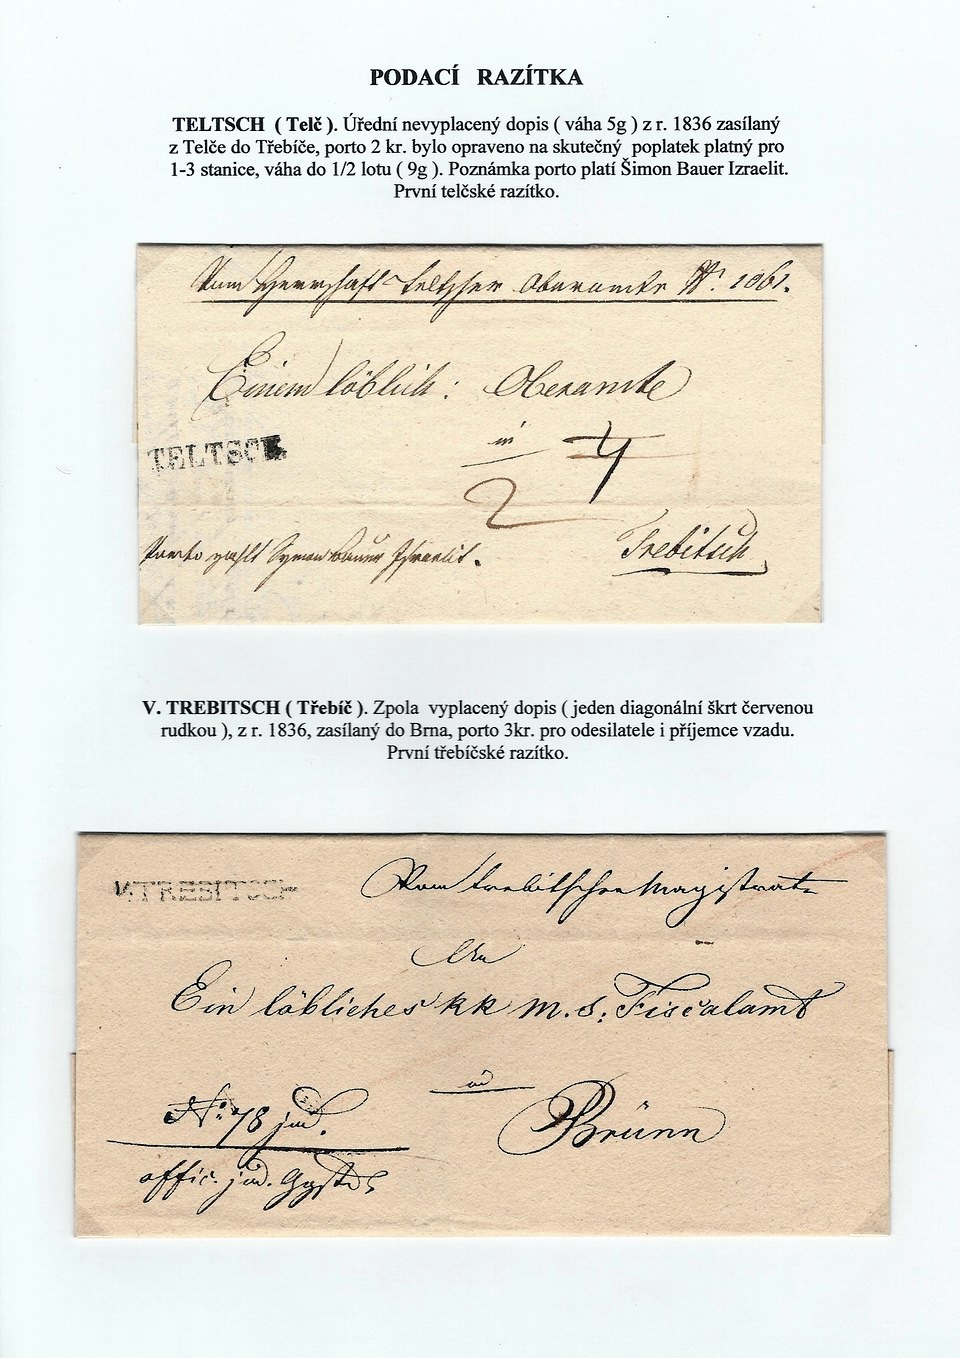 PODACÍ RAZÍTKA
TELTSCH ( Telč ). Úřední nevyplacený dopis ( váha 5g ) z r. 1836 zasílaný
z Telče do Třebíče, porto 2 kr. bylo opraveno na skutečný poplatek platný pro
1-3 stanice, váha do 1/2 lotu ( 9g ). Poznámka porto platí Šimon Bauer Izraelit.
První telčské razítko.
Vom Herrschaft Teltscher Oberamte No. 1061.
Einem löblich: Oberamte
in 4
TELTSCH
2
Trebitsch
Porto zahlt Symon Bauer Israelit.
V. TREBITSCH ( Třebíč ). Zpola vyplacený dopis ( jeden diagonální škrt červenou
rudkou ), z r. 1836, zasílaný do Brna, porto 3kr. pro odesilatele i příjemce vzadu.
První třebíčské razítko.
V.TREBITSCH
Vom Trebitscher Magistrate
An
Ein löbliches kk m. s. Fiscalamt
No: 78 jud.
Brünn
offic. jud.